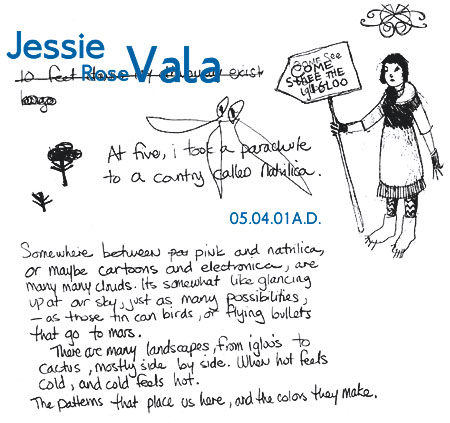 Jessie
Rose Vala
10 feet
exist
COME See
COME
SEE THE
IGLOO
At five, i took a parachute
to a country called Natrilica.
05.04.01A.D.
Somewhere between pink and natrilica,
or maybe cartoons and electronica, are
many many clouds. Its somewhat like glancing
up at our sky, just as many possibilities,
– as those tin can birds, or flying bullets
that go to mars.
There are many landscapes, from igloo's to
cactus, mostly side by side. When hot feels
cold, and cold feels hot.
The patterns that place us here, and the colors they make.